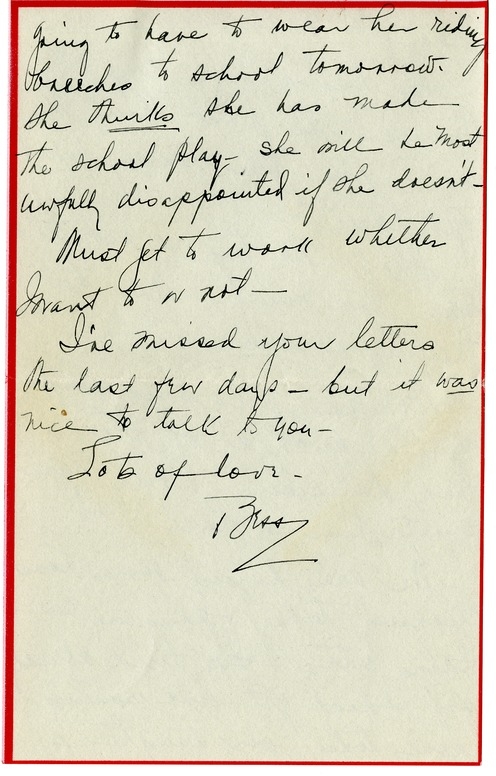 going to have to wear her riding
breeches to school tomorrow.
She thinks she has made
the school play - she will be most
awfully disappointed if she doesn't -
Must get to work whether
I want to or not —
I've missed your letters
the last few days - but it was
nice to talk to you -
Lots of love -
Bess